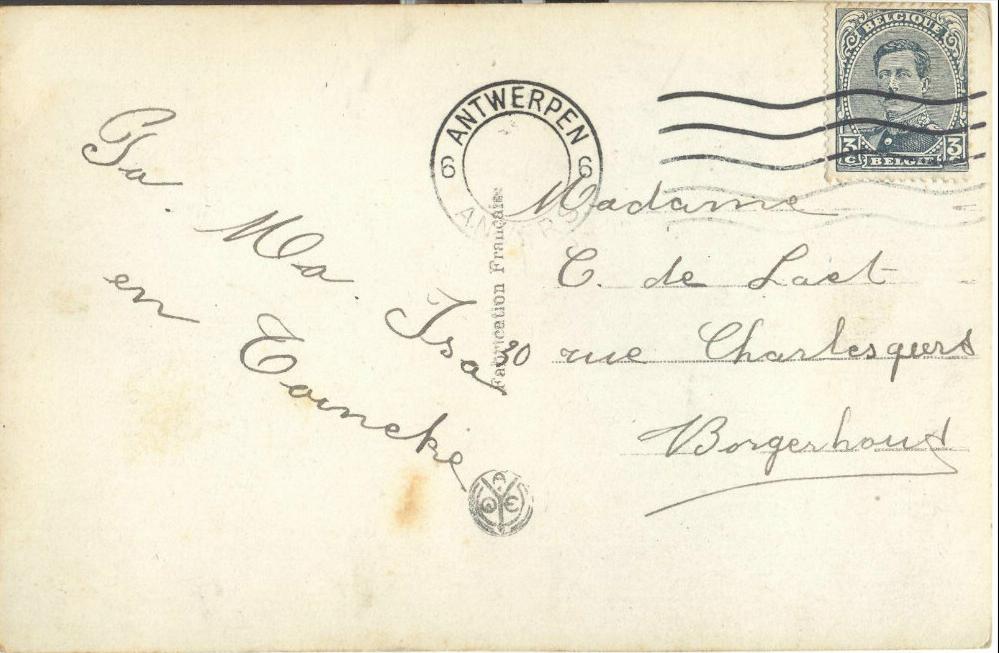 BELGIQUE
3c 3c
BELGIË
ANTWERPEN
6 6
ANVERS
Madame
C. de Laet
30 rue Charlesquint
Borgerhout
Fabrication Française
Pa. Ma Isa
en Toineke